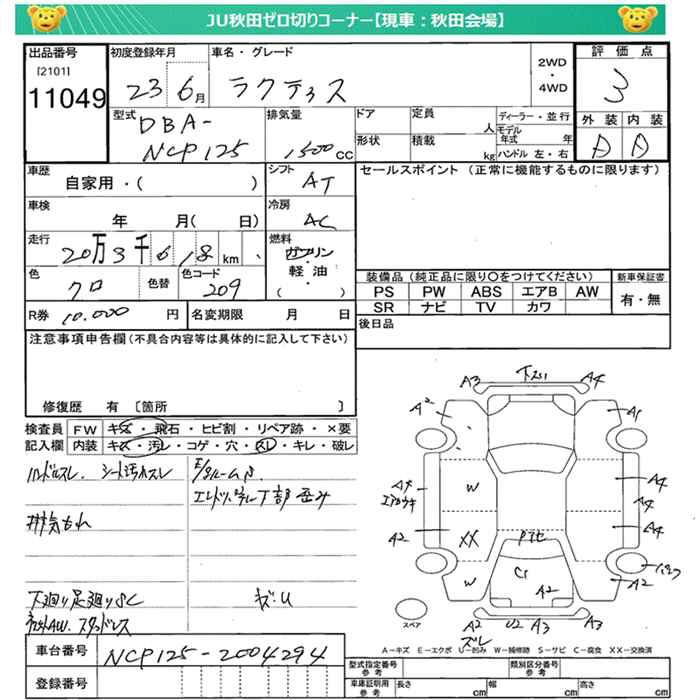 JU秋田ゼロ切りコーナー【現車：秋田会場】
出品番号
[2101]
11049
初度登録年月
23 6月
車名・グレード
ラクティス
2WD
・
4WD
評価点
3
外装 内装
A A
型式
DBA-
NCP125
排気量
1500cc
ドア
定員
人
形状
積載
kg
ディーラー・並行
モデル年式 年
ハンドル 左・右
車歴
自家用・( )
シフト
AT
車検
年 月( 日)
冷房
AC
走行
20万3千618km
燃料
ガソリン
・
軽油
・
( )
色
クロ
色替
色コード
209
R券 10.000 円
名変期限 月 日
セールスポイント（正常に機能するものに限ります）
装備品（純正品に限り○をつけてください）
PS PW ABS エアB AW
SR ナビ TV カワ
新車保証書
有・無
後日品
注意事項申告欄(不具合内容等は具体的に記入して下さい)
修復歴 有 〔箇所 〕
検査員
記入欄
FW キズ・飛石・ヒビ割・リペア跡・×要
内装 キズ・汚レ・コゲ・穴・スレ・キレ・破レ
ハンドルスレ. シート汚れスレ
排気もれ
下廻り足廻りSC
スタッドレス
キズ・U
A3 A4
A2 A1
W
A4
A4
A4
A2 XX
W
A2
A2
A2 U2 A3 A3
ズレ
スペア
A－キズ E－エクボ U－凹み W－補修跡 S－サビ C－腐食 XX－交換済
車台番号
NCP125-2004294
登録番号
型式指定番号
参考
類別区分番号
参考
車庫証明用
参考
長さ cm 幅 cm 高さ cm